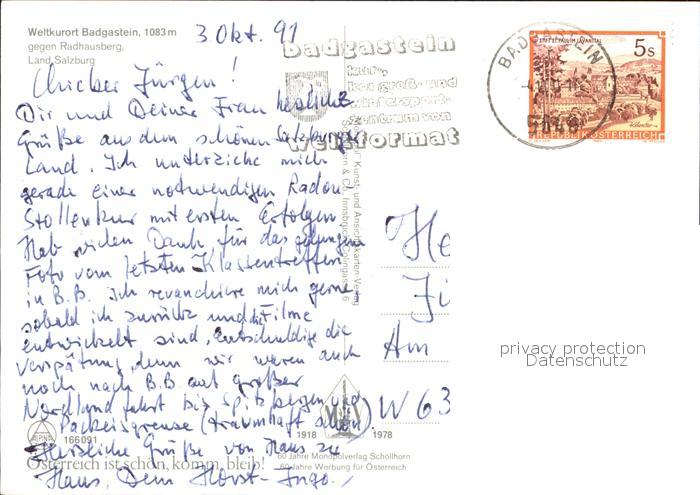 Weltkurort Badgastein, 1083 m
gegen Radhausberg,
Land Salzburg
3 Okt. 91
Badgastein
kur-,
kongreß- und
wintersport-
zentrum von
Weltformat
BADGASTEIN
5640
STIFT ST. PAUL IM LAVANTTAL
5 S
REPUBLIK ÖSTERREICH
Lieber Jürgen!
Dir und Deiner Frau herzliche
Grüße aus dem schönen Salzburger
Land. Ich unterziehe mich
gerade einer notwendigen Radon
Stollenkur mit ersten Erfolgen
Hab vielen Dank für das gelungene
Foto vom letzten Klassentreffen
in B.B. Ich revanchiere mich gerne
sobald ich zurück und die Filme
entwickelt sind, entschuldige die
Verspätung, denn wir waren auch
noch nach B.B auf großer
Nordland fahrt bis Spitzbergen und
Packeisgrenze (traumhaft schön).
Herzliche Grüße von Haus zu
Haus, Dein Horst-Ingo.
He
Am
W 63
Kunst- und Ansichtskarten-Verlag
& Co., Innsbruck,
ALPINA
166 091
1918
1978
60 Jahre Monopolverlag Schöllhorn
60 Jahre Werbung für Österreich
Österreich ist schön, komm, bleib!
privacy protection
Datenschutz